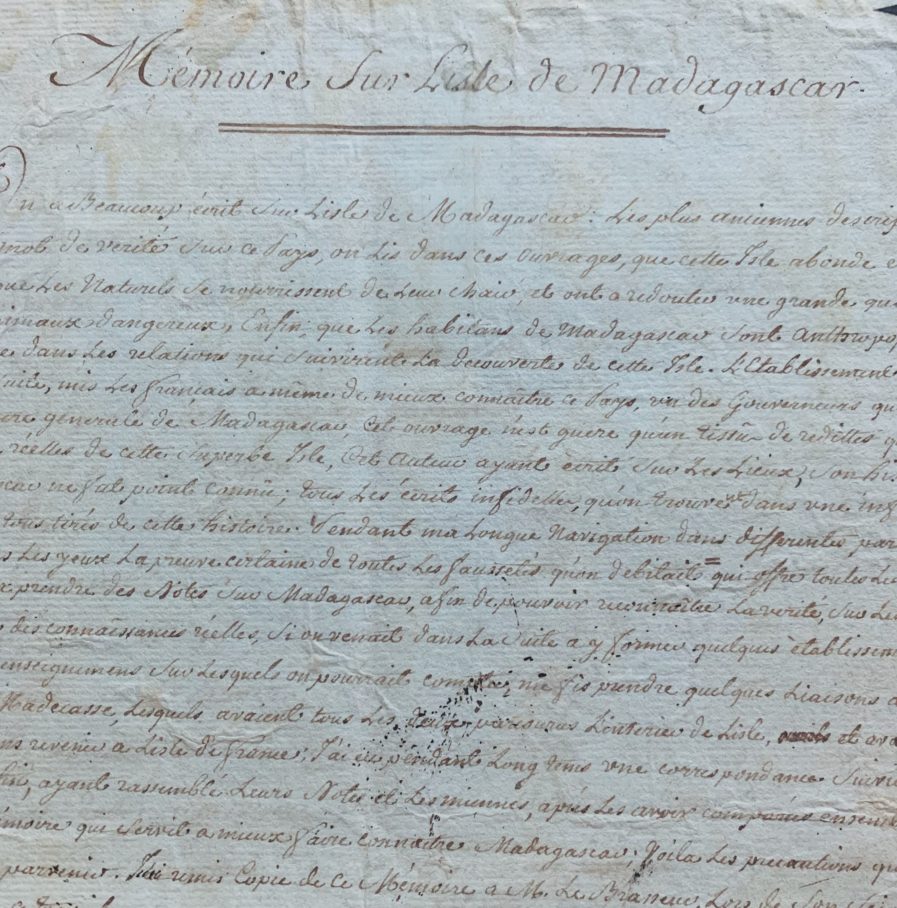 Mémoire Sur Lisle de Madagascar.
On a Beaucoup écrit Sur Lisle de Madagascar: Les plus anciennes descrip
mot de verité Sur ce Pays, on Lis dans ces ouvrages, que cette Isle abonde e
que Les Naturels Se nourrissent de Leur Chair, et ont a redouter une grande qu
nimaux dangereux, Enfin que Les habitans de Madagascar Sont Anthropop
e dans Les relations qui Suivirent La decouverte de cette Isle. L'Etablissement
mis Les français a même de mieux connaître ce Pays, un des Gouverneurs qu
generale de Madagascar, Cet ouvrage n'est guere qu'un tissû de redittes q
reelles de cette Superbe Isle, Cet Auteur ayant écrit Sur Les Lieux, Son his
car ne fut point connû; tous Les écrits infidelles, qu'on trouve dans une inf
tous tirés de cette histoire. Pendant ma Longue Navigation dans differentes par
s Les yeux La preuve certaine de toutes Les faussetés qu'on debitait = qui offre toutes Les
prendre des Notes Sur Madagascar, afin de pouvoir reconnaître La verité, Sur Les
des connaissances réelles, Si on venait dans La Suite a y former quelques établissem
enseignemens Sur Lesquels on pourrait compter, me fis prendre quelques Liaisons a
Madecasse, Lesquels avaient tous Les deux parcourus L'interieur de Lisle, et ava
ns revenir a Lisle de france; J'ai eu pendant Long tems une correspondance Suivie
fin, ayant rassemblé Leurs Notes et Les miennes, après Les avoir comparées ensemb
émoire qui Servit a mieux faire connaître Madagascar; Voila Les precautions qu
parvenir. J'ai remis Copie de Ce Mémoire a M. Le Brasseur, Lors de Son